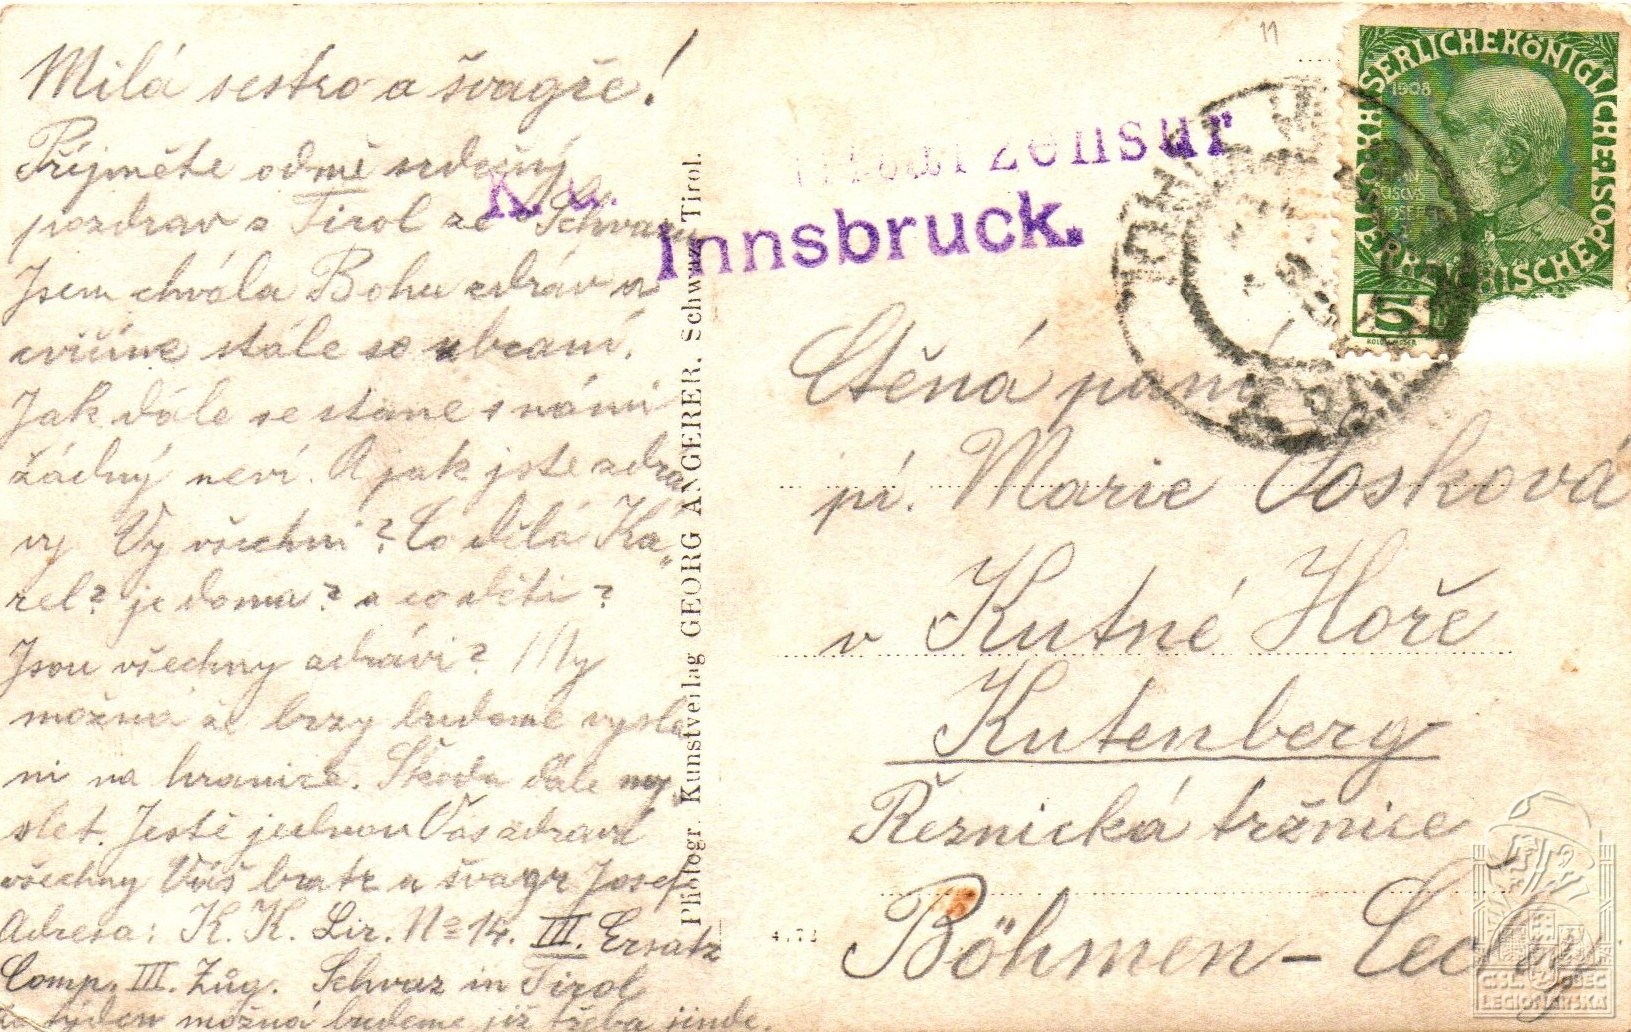 Milá sestro a švagře!
Příjměte odmě srdečný
pozdrav z Tirol ze Schwazu
Jsem chvála Bohu zdráv a
cvičíme stále se zbraní.
Jak dále se stane s námi
žádný neví. A jak jste zdra
vy Vy všichni? Co dělá Ka,
rel? je doma? a co děti?
Jsou všechny zdrávi? My
možná že brzy budeme vysla
ni na hranice. Škoda dále my,
slet. Ještě jednou Vás zdraví
všechny Váš bratr a švagr Josef
Adresa: K. K. Lir. No 14. III. Ersatz
Comp. III. Zug. Schvaz in Tirol
za týden možná budeme již třeba jinde.
Photogr. Kunstverlag GEORG ANGERER, Schwaz, Tirol.
K. u.
zensur
Innsbruck.
11
KAISERLICHE KÖNIGLICHE ÖSTERREICHISCHE POST
1908
5
Ctěná paní
pí. Marie Vosková
v Kutné Hoře
Kutenberg
Řeznická tržnice
Böhmen – Čechy
ČSL. OBEC
LEGIONÁŘSKÁ